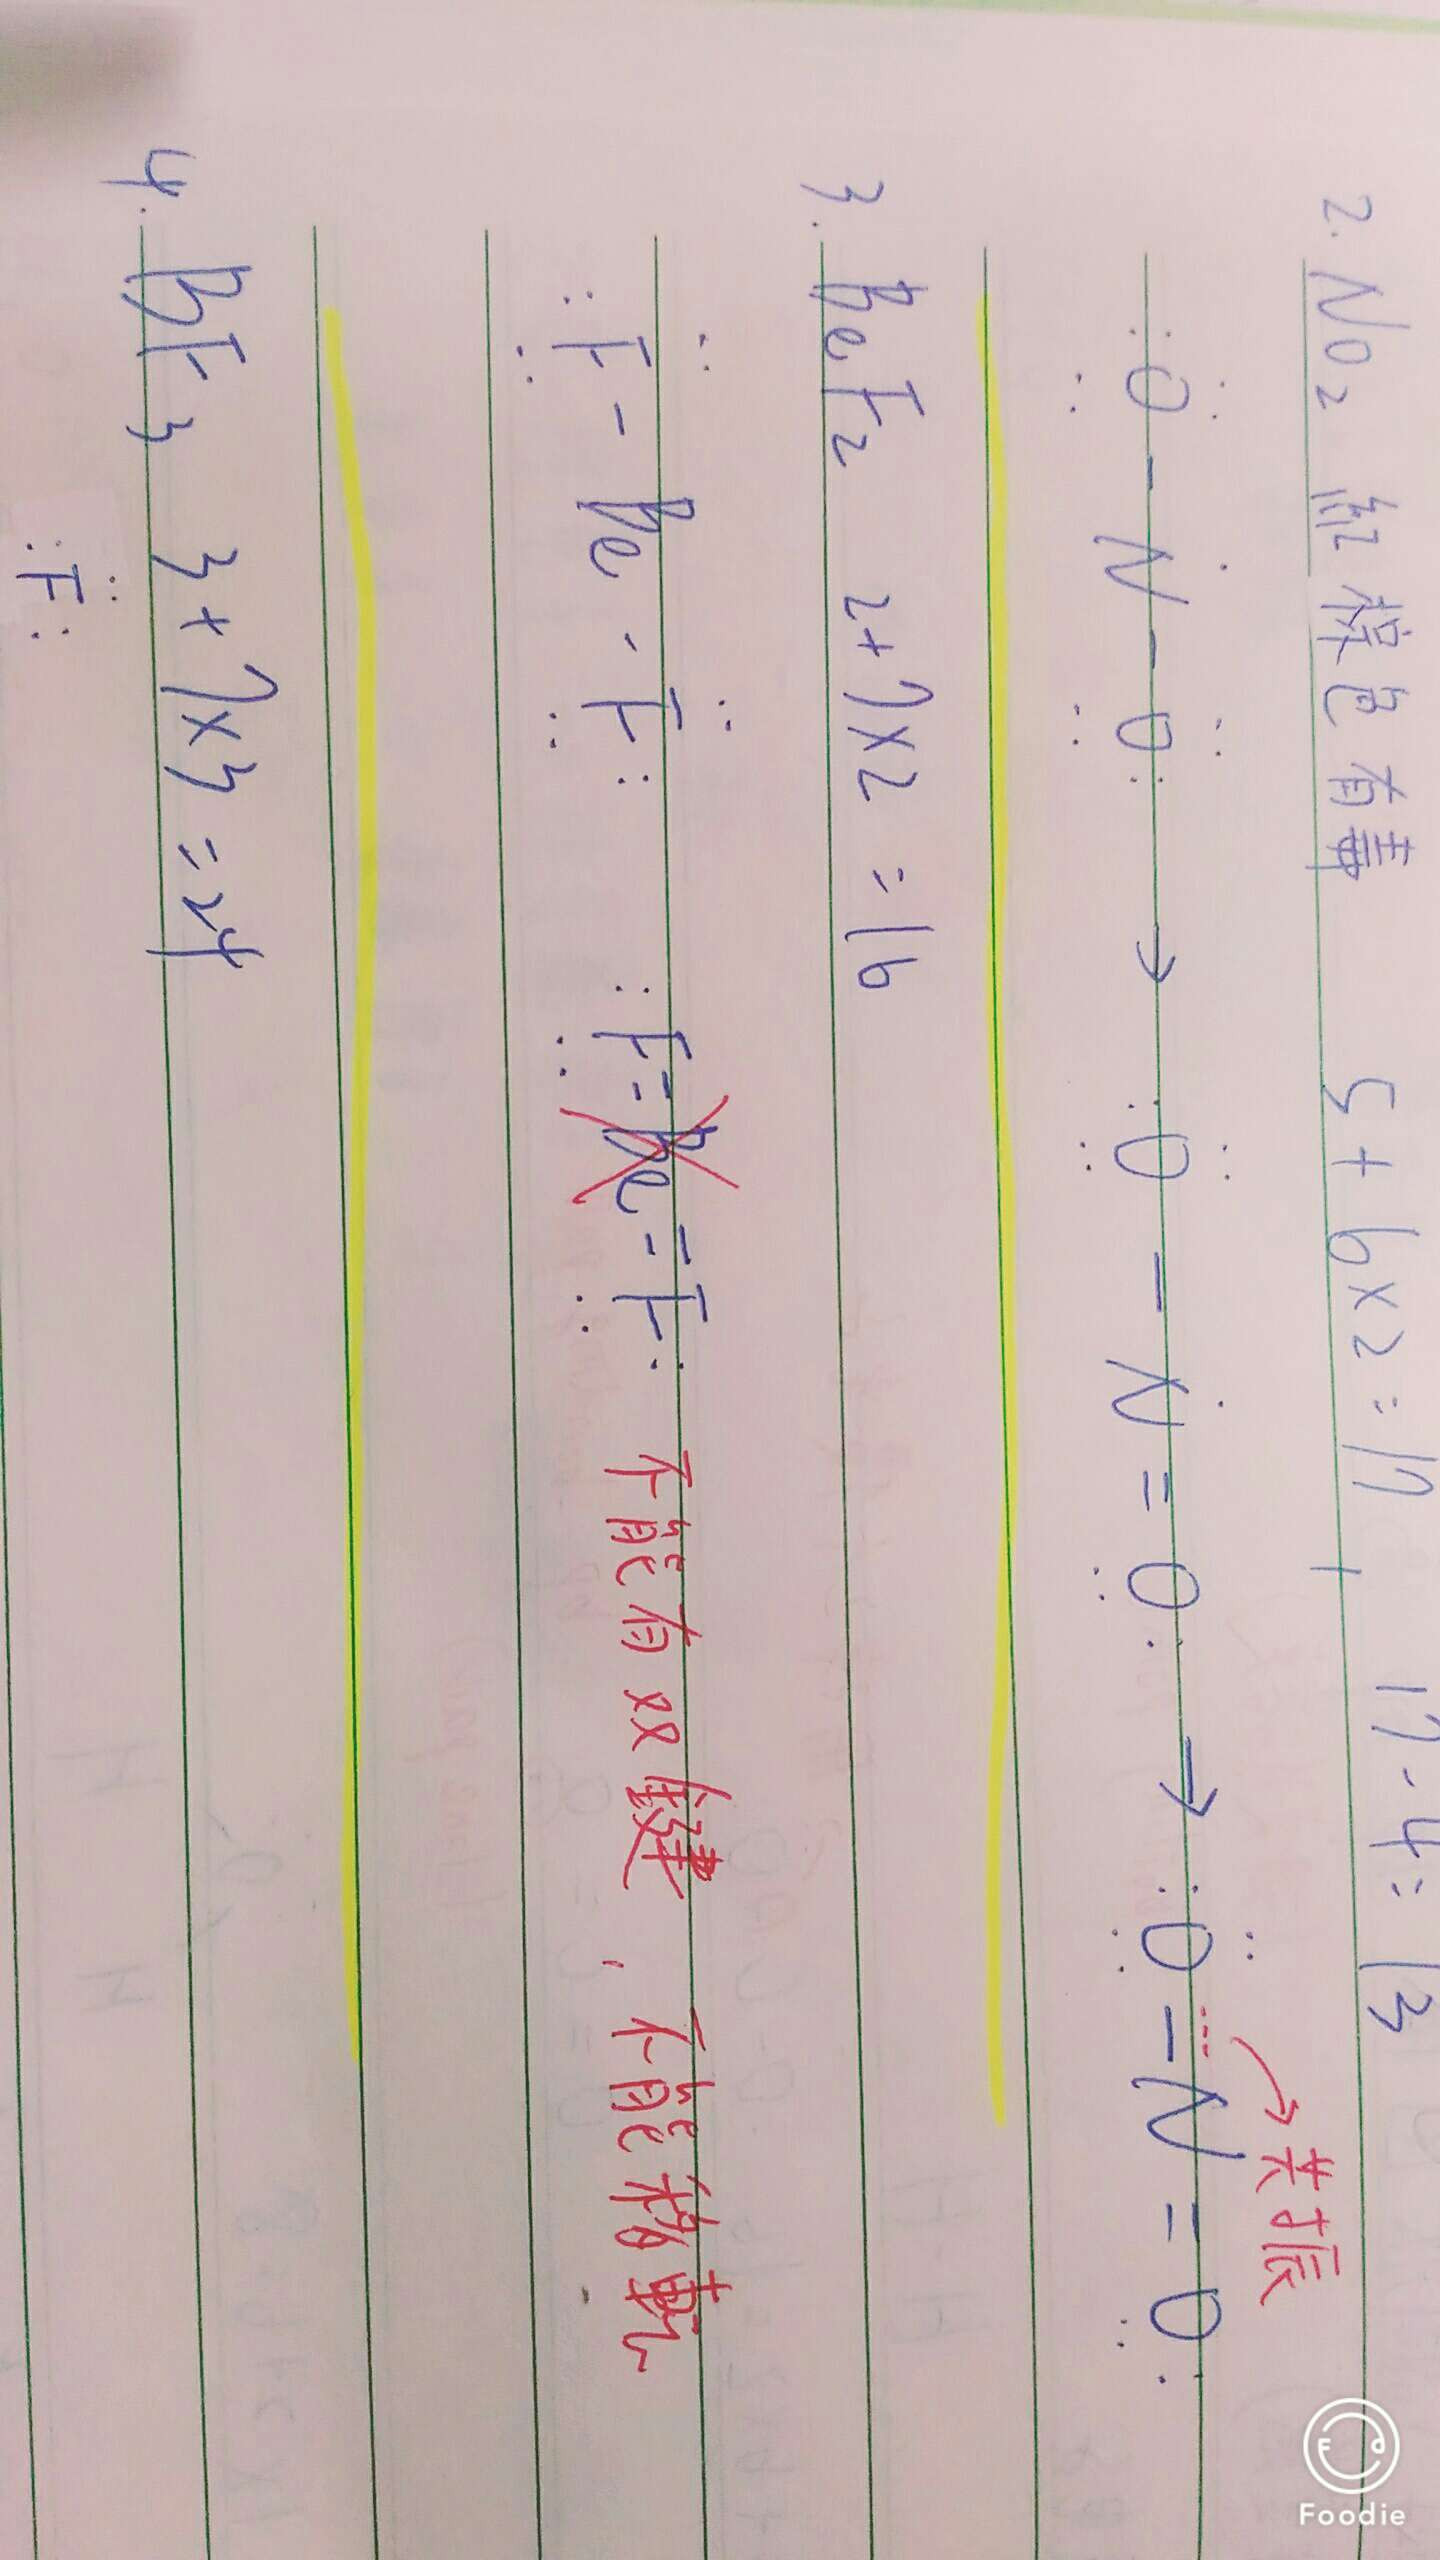 2. NO2 紅棕色有毒 5+6x2=17 17-4=13
:Ö-Ṅ-Ö: → :Ö-Ṅ=O: → :Ö-N=O:
共振
3. BeF2 2+7x2=16
:F-Be-F: :F=Be=F: 不能有双鍵、不能移動
4. BF3 3+7x3=24
:F:
Foodie